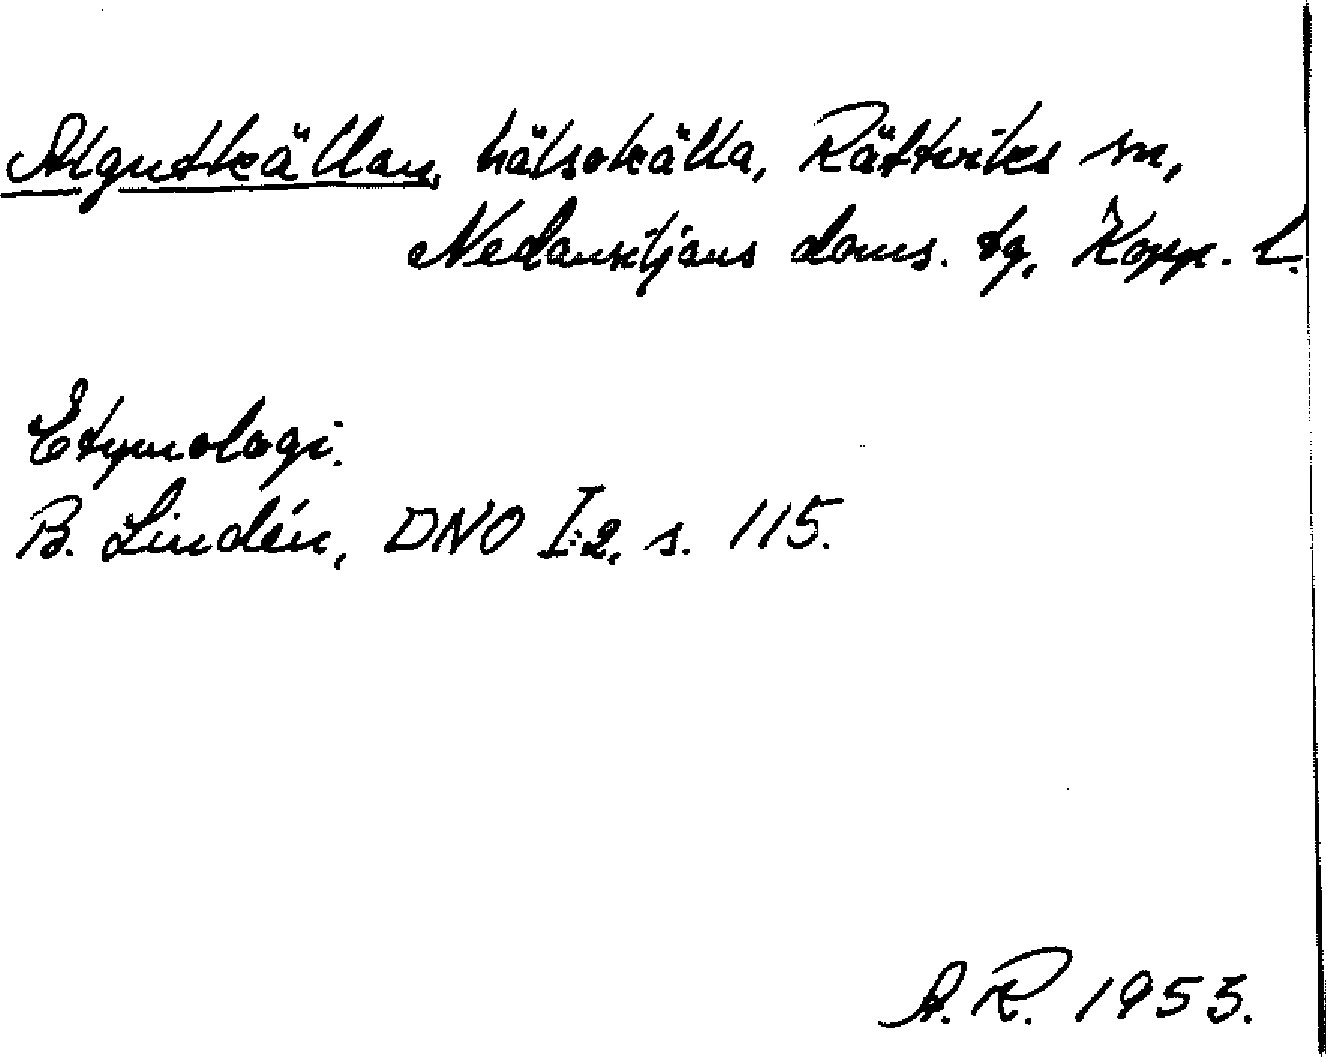 Algutkällan, hälsokälla, Rättviks sn,
Nedansiljans doms. tg, Kopp. l.
Etymologi.
B. Lindén, DNO I:2, s. 115.
A. R. 1953.